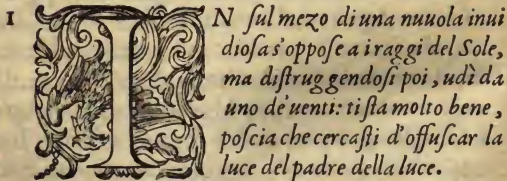 1 IN ſul mezo di una nuuola inui
dioſa s'oppoſe a i raggi del Sole,
ma diſtruggendoſi poi, udì da
uno de' uenti: ti ſta molto bene,
poſcia che cercaſti d'offuſcar la
luce del padre della luce.